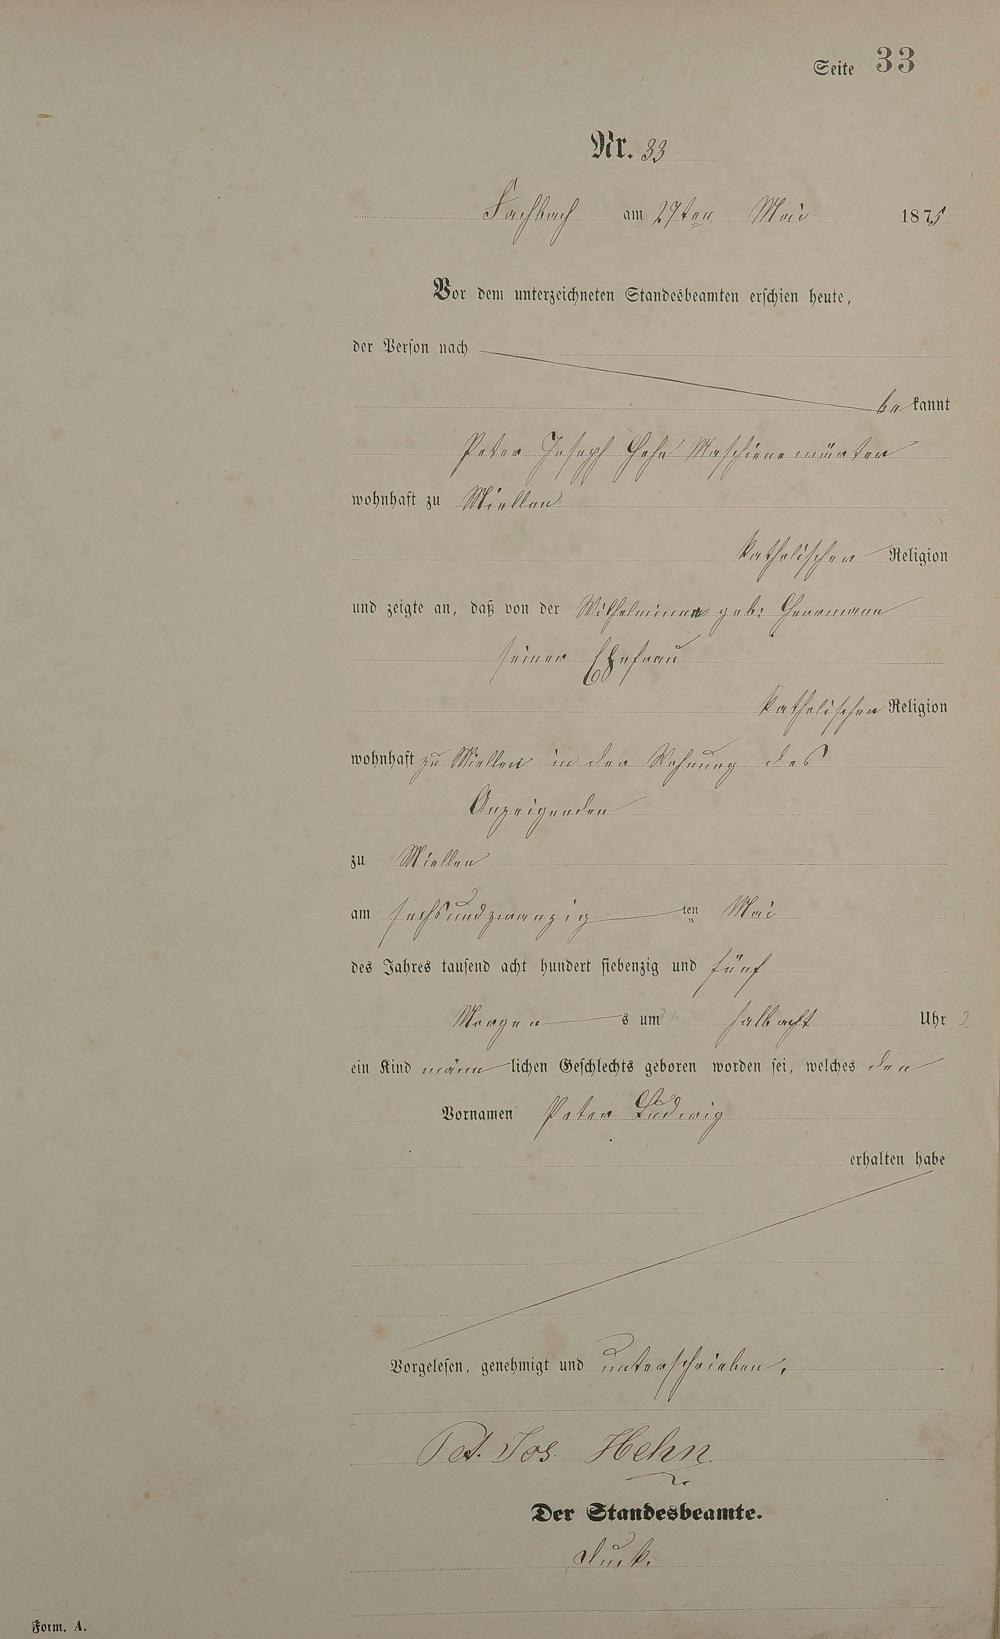 Seite 33
Nr. 33
Fachbach am 27ten Mai 1875
Vor dem unterzeichneten Standesbeamten erschien heute,
der Person nach
bekannt
Peter Joseph Hehn Maschienewärter
wohnhaft zu Miellen
katholischer Religion
und zeigte an, daß von der Wilhelmine geb: Herrmann
seiner Ehefrau
katholischer Religion
wohnhaft zu Miellen in der Wohnung des
Anzeigenden
zu Miellen
am sechsundzwanzigten Mai
des Jahres tausend acht hundert siebenzig und fünf
Morgens um halbacht Uhr
ein Kind männlichen Geschlechts geboren worden sei, welches den
Vornamen Peter Ludwig
erhalten habe
Vorgelesen, genehmigt und unterschrieben.
Pet. Jos. Hehn
Der Standesbeamte.
Form. A.